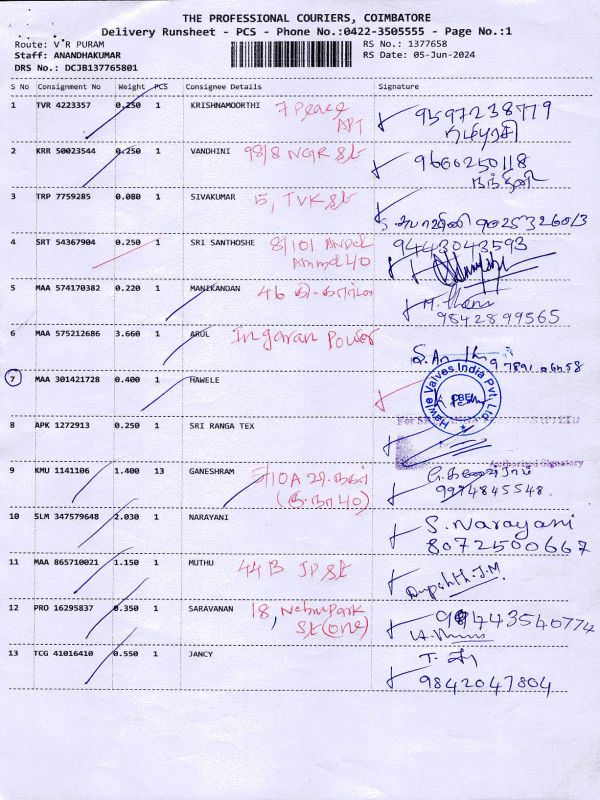 THE PROFESSIONAL COURIERS, COIMBATORE
Delivery Runsheet - PCS - Phone No.:0422-3505555 - Page No.:1
Route: V R PURAM RS No.: 1377658
Staff: ANANDHAKUMAR RS Date: 05-Jun-2024
DRS No.: DCJB137765801
S No Consignment No Weight PCS Consignee Details Signature
1 TVR 4223357 0.250 1 KRISHNAMOORTHI 7 Peace 9597238779
APT
2 KRR 50023544 0.250 1 VANDHINI 98/8 NGR St 9660250118
நந்தினி
3 TRP 7759285 0.080 1 SIVAKUMAR 15, TVK St
9025326013
4 SRT 54367904 0.250 1 SRI SANTHOSHE 8/101 9443043593
5 MAA 574170382 0.220 1 MANIKANDAN 46
9842899565
6 MAA 575212686 3.660 1 ARUL Ingaran Power
7 MAA 301421728 0.400 1 HAWELE
Hawle Valves India Pvt. Ltd.
8 APK 1272913 0.250 1 SRI RANGA TEX
Authorised Signatory
9 KMU 1141106 1.400 13 GANESHRAM
9994845548
10 SLM 347579648 2.030 1 NARAYANI S. Narayani
8072500667
11 MAA 865710021 1.150 1 MUTHU 44B JP St
12 PRO 16295837 0.350 1 SARAVANAN 18, Nehru Park
St (one)
13 TCG 41016410 0.550 1 JANCY
9842047804